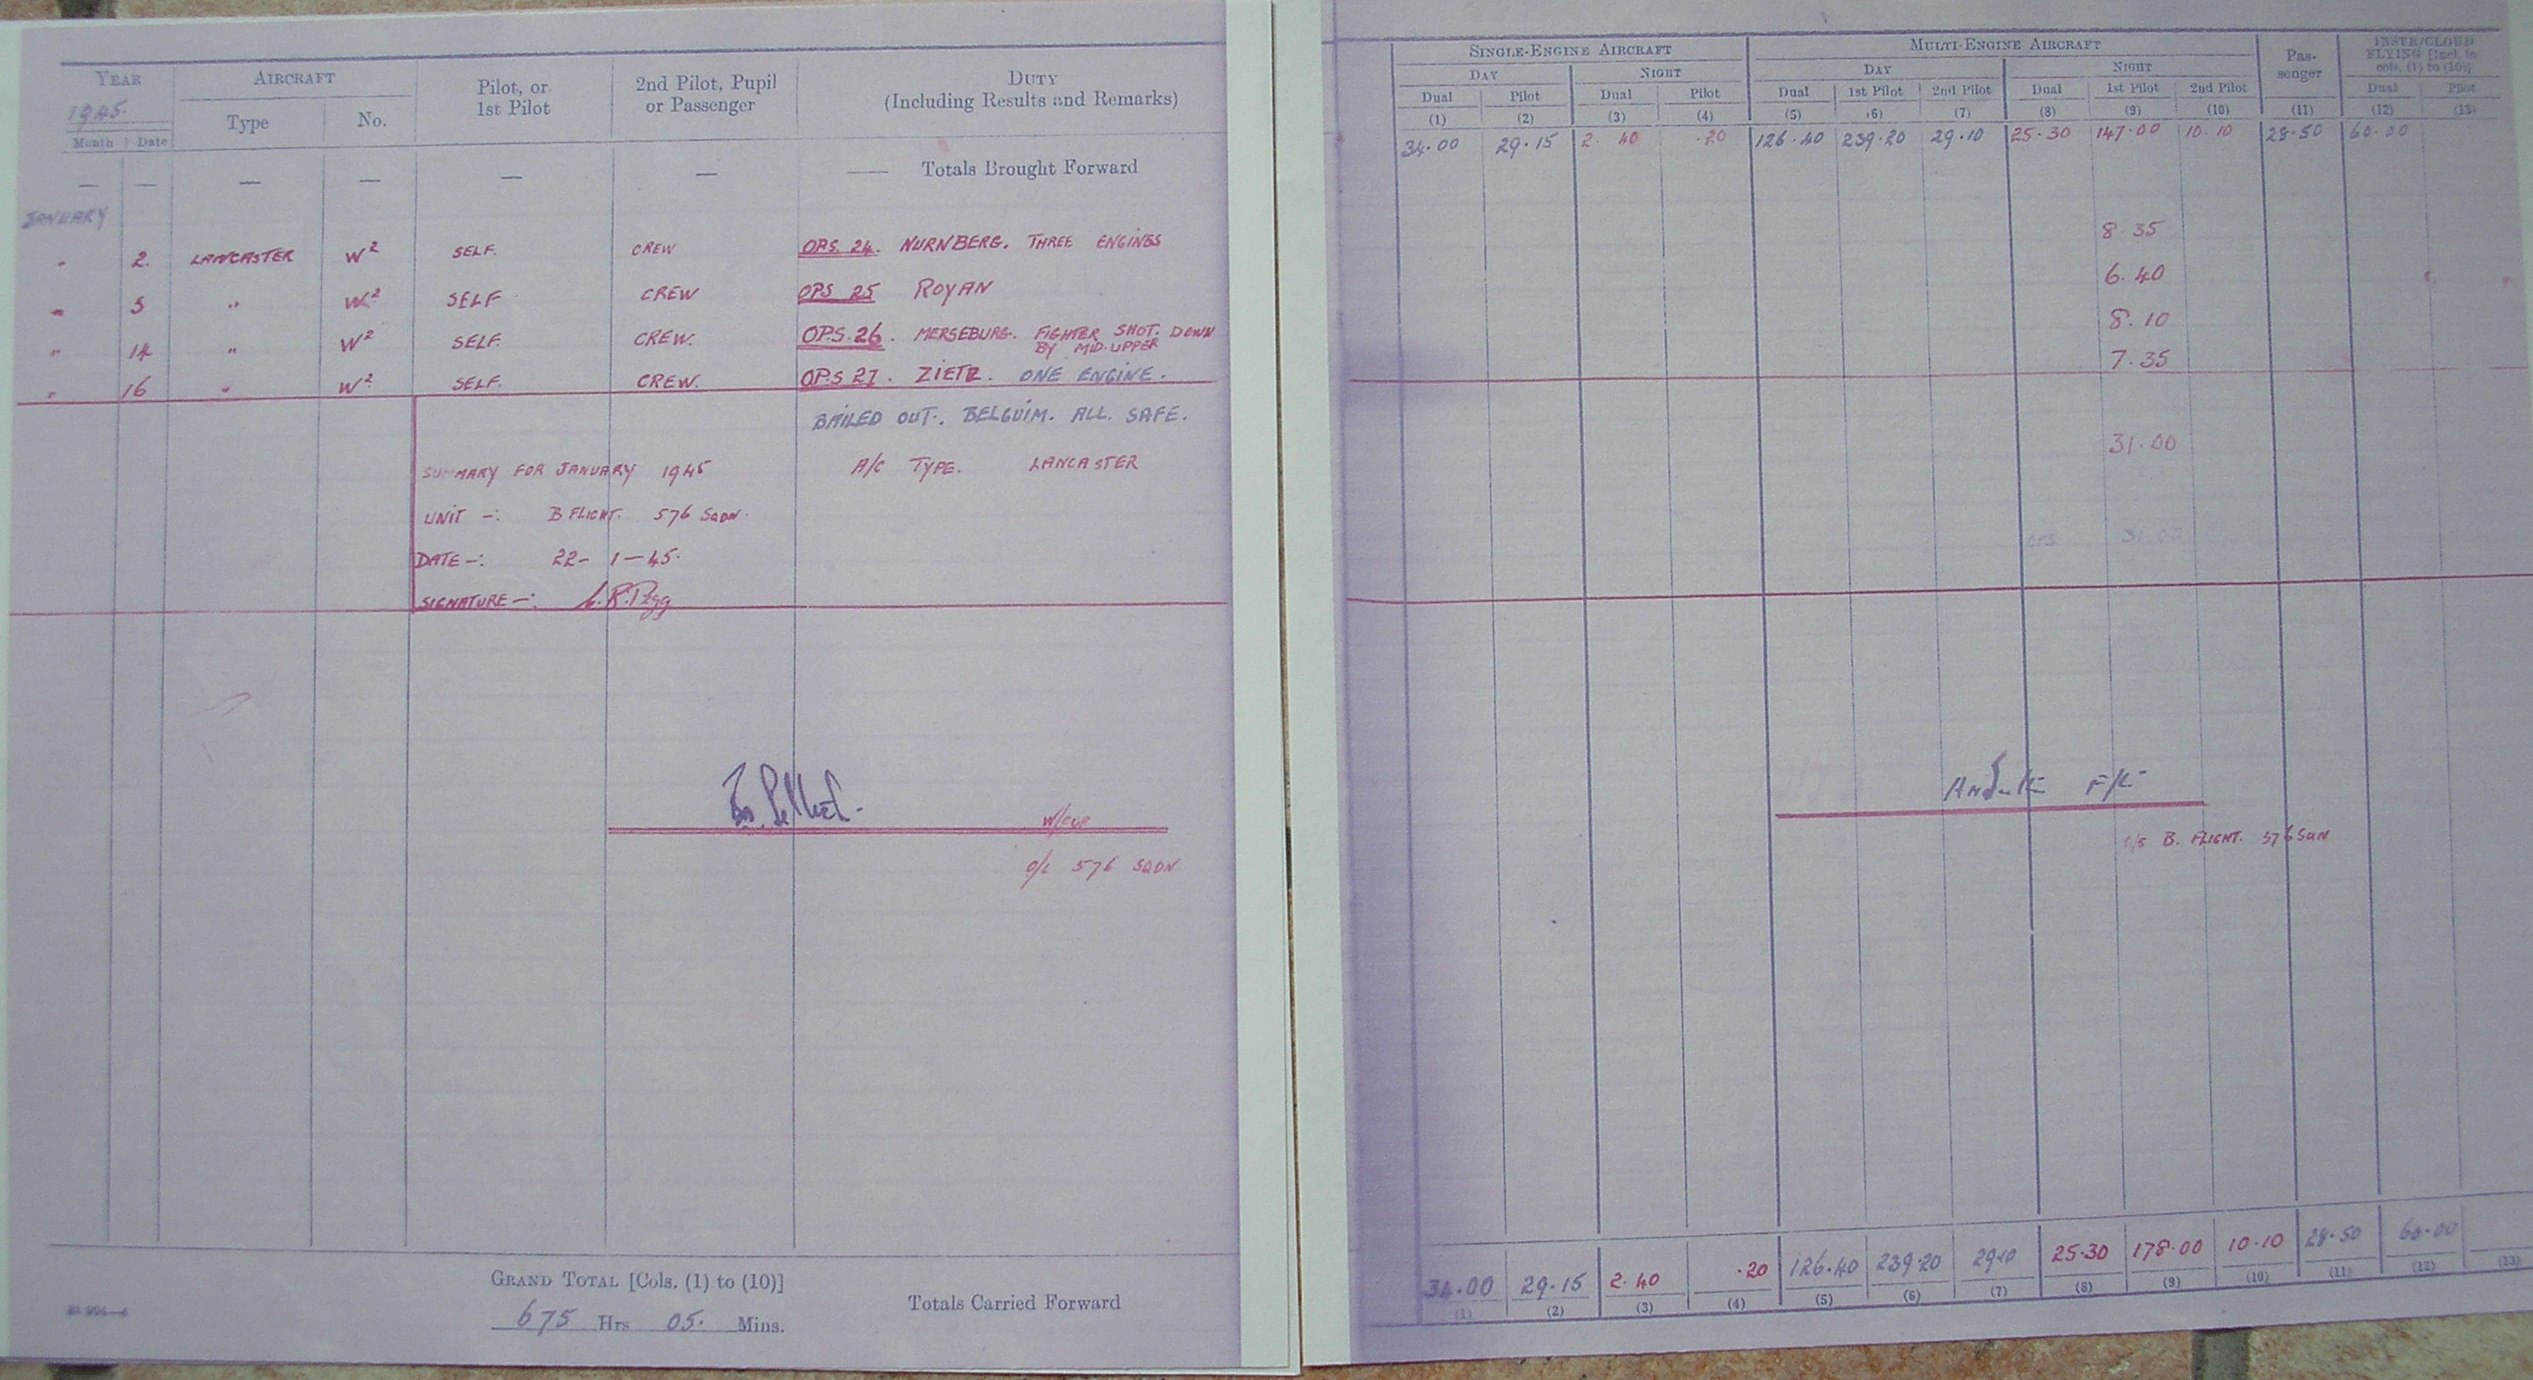 YEAR AIRCRAFT Pilot, or 1st Pilot 2nd Pilot, Pupil or Passenger DUTY (Including Results and Remarks)
1945. Type No.
Month Date
— — — — — — — Totals Brought Forward
JANUARY
" 2. LANCASTER W² SELF. CREW OPS. 24. NURNBERG. THREE ENGINES
" 5 " W² SELF CREW OPS 25 ROYAN
" 14 " W² SELF. CREW. OPS. 26. MERSEBURG. FIGHTER SHOT. DOWN
BY MID-UPPER
" 16 " W² SELF. CREW. OPS 27. ZIETZ. ONE ENGINE.
BAILED OUT. BELGUIM. ALL. SAFE.
SUMMARY FOR JANUARY 1945 A/C TYPE. LANCASTER
UNIT -: B FLIGHT. 576 SQDN.
DATE -: 22 - 1 - 45.
SIGNATURE -:
W/CDR
O/C 576 SQDN
GRAND TOTAL [Cols. (1) to (10)]
675 Hrs 05. Mins.
Totals Carried Forward
SINGLE-ENGINE AIRCRAFT MULTI-ENGINE AIRCRAFT Pas-senger INSTR/CLOUD FLYING [Incl. in cols. (1) to (10)]
DAY NIGHT DAY NIGHT
Dual Pilot Dual Pilot Dual 1st Pilot 2nd Pilot Dual 1st Pilot 2nd Pilot Dual Pilot
(1) (2) (3) (4) (5) (6) (7) (8) (9) (10) (11) (12) (13)
34.00 29.15 2.40 .20 126.40 239.20 29.10 25.30 147.00 10.10 28.50 60.00
8.35
6.40
8.10
7.35
31.00
OPS 31.00
F/L
O/C B. FLIGHT. 576 SQN
34.00 29.15 2.40 .20 126.40 239.20 29.10 25.30 178.00 10.10 28.50 60.00
(1) (2) (3) (4) (5) (6) (7) (8) (9) (10) (11) (12) (13)